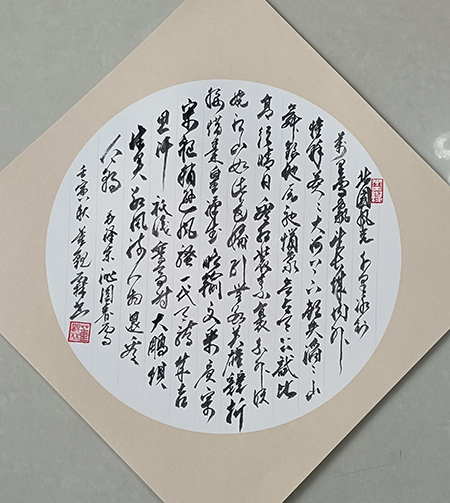 北国风光 千里冰封
万里雪飘 望长城内外
惟余莽莽 大河上下 顿失滔滔 山
舞银蛇 原驰蜡象 欲与天公试比
高 须晴日 看红装素裹 分外妖
娆 江山如此多娇 引无数英雄竞折
腰 惜秦皇汉武 略输文采 唐宗
宋祖 稍逊风骚 一代天骄 成吉
思汗 祗识弯弓射大雕 俱
往矣 数风流人物 还看
今朝 毛泽东 沁园春 雪
壬寅秋